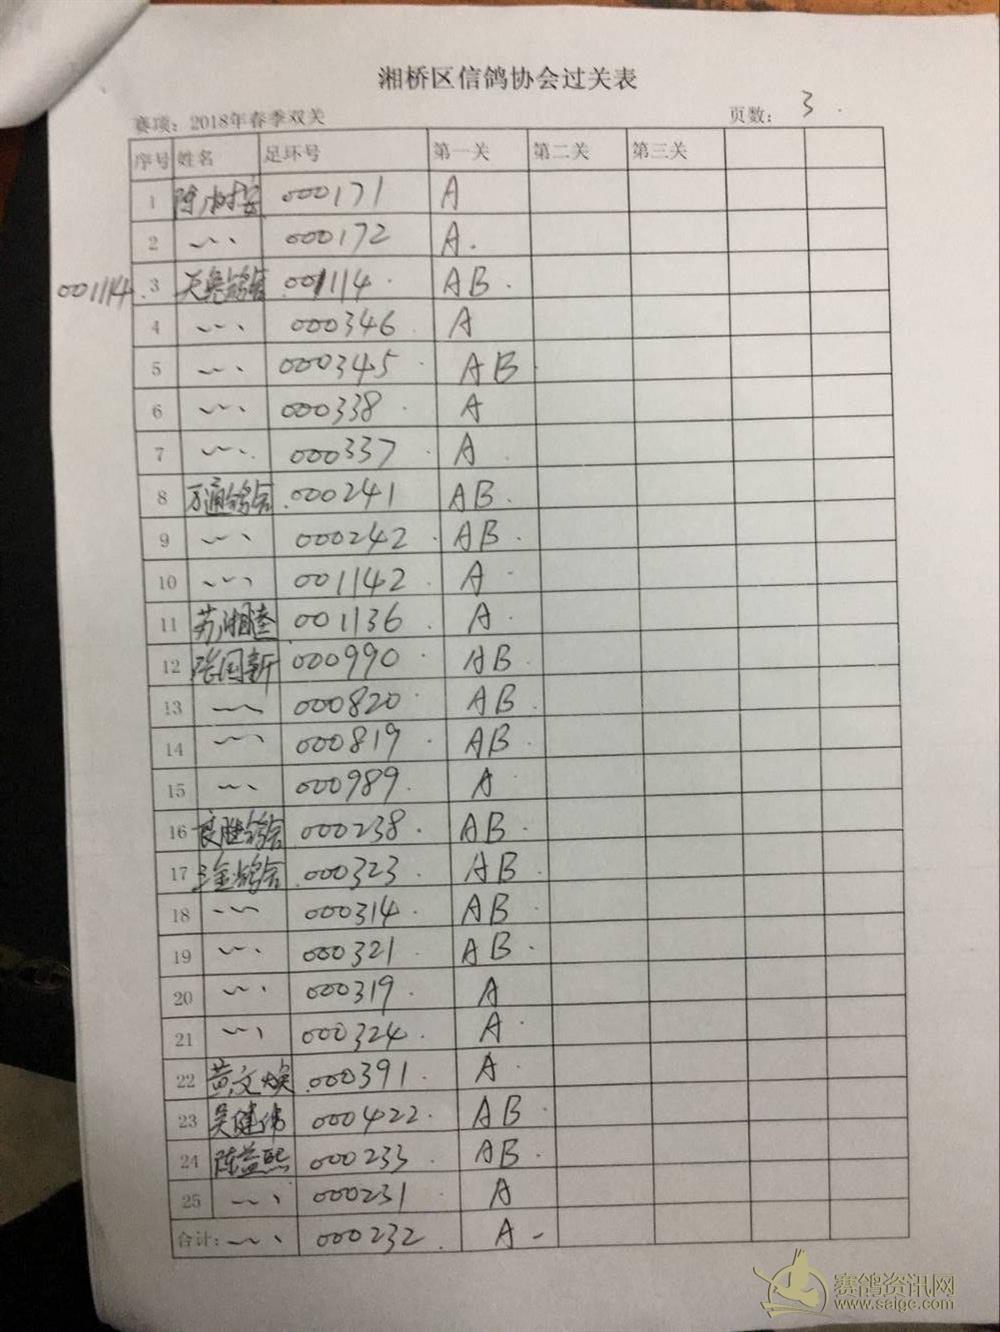 湘桥区信鸽协会过关表
赛项：2018年春季双关 页数：3
序号 姓名 足环号 第一关 第二关 第三关
1 陈树安 000171 A
2 〃 000172 A
001114 3 天亮鸽舍 001114 AB
4 〃 000346 A
5 〃 000345 AB
6 〃 000338 A
7 〃 000337 A
8 万通鸽舍 000241 AB
9 〃 000242 AB
10 〃 001142 A
11 苏湘奎 001136 A
12 张国新 000990 AB
13 〃 000820 AB
14 〃 000819 AB
15 〃 000989 A
16 良胜鸽舍 000238 AB
17 鸽舍 000323 AB
18 〃 000314 AB
19 〃 000321 AB
20 〃 000319 A
21 〃 000324 A
22 黄文焕 000391 A
23 吴健伟 000422 AB
24 陈益熙 000233 AB
25 〃 000231 A
合计：〃 000232 A
赛鸽资讯网
www.saige.com